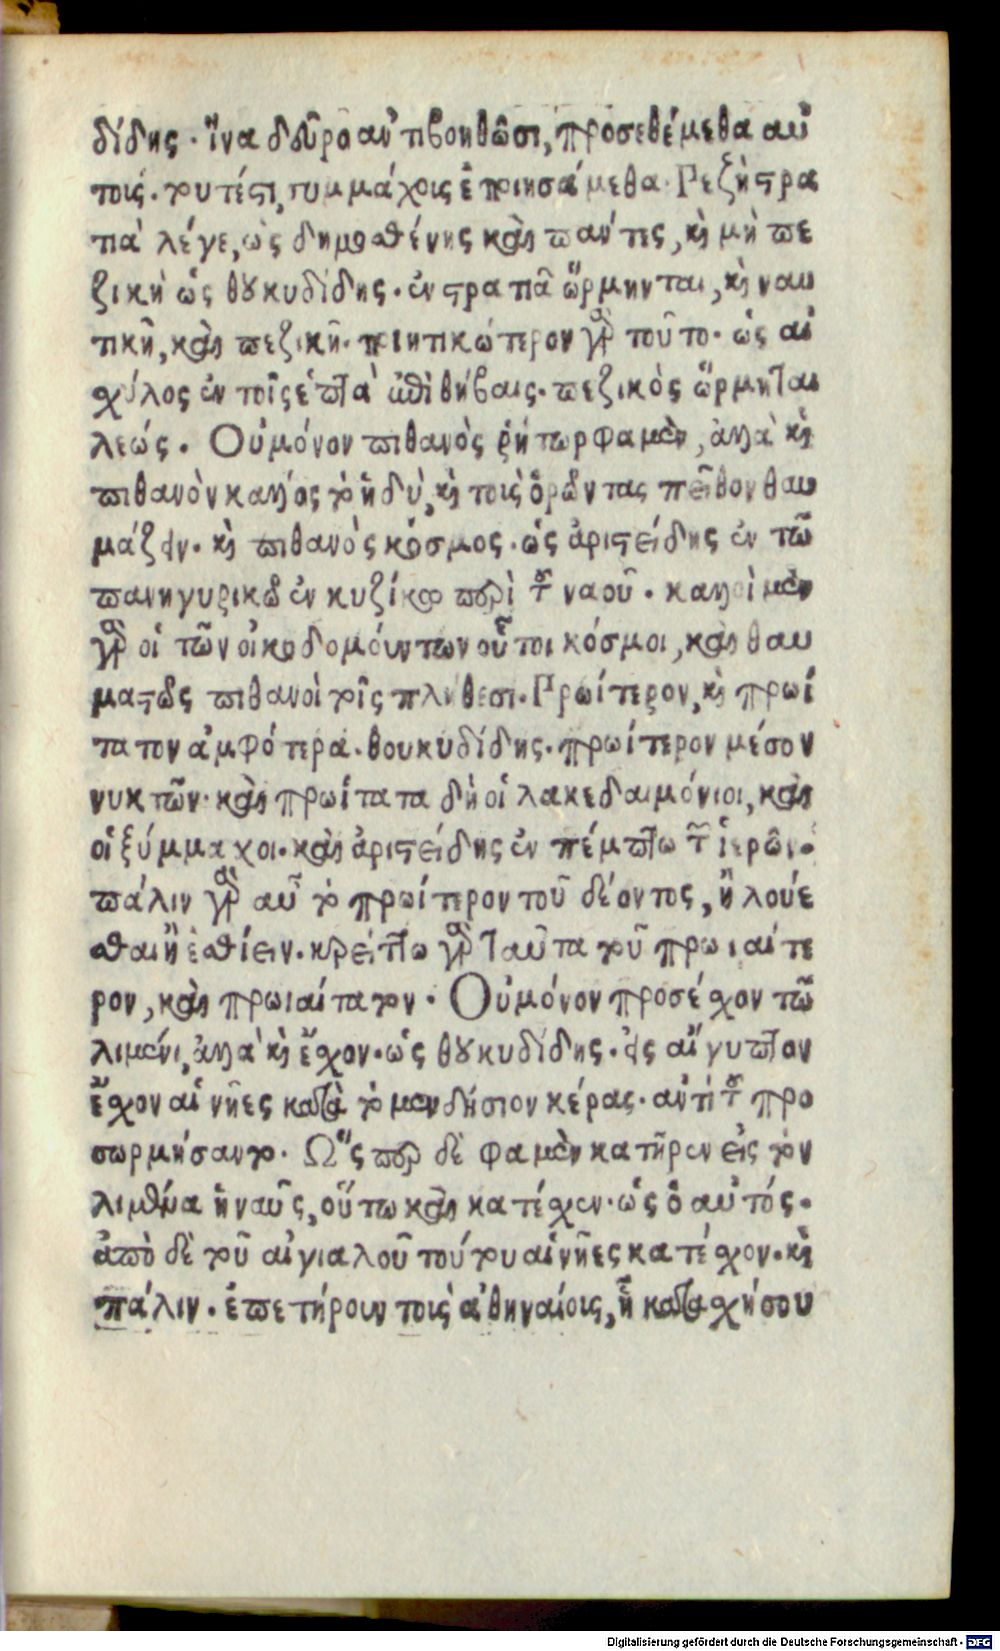 δίδης· ἵνα δεῦρο ἀντιβοηθῶσι, προσεθέμεθα αὐ
τοὺς· τουτέστι, συμμάχοις ἐποιησάμεθα. Πεζῇ στρα
τιὰ λέγε, ὡς δημοσθένης καὶ πάντες, καὶ μὴ πε
ζικὴ ὡς θουκυδίδης· ἐν στρατιᾶ ὥρμηνται, καὶ ναυ
τικῇ, καὶ πεζικῇ· ποιητικώτερον γὰρ τοῦτο· ὡς αἰ
χύλος ἐν τοῖς ἑπτὰ ἐπὶ θήβαις· πεζικὸς ὥρμηται
λεώς. Οὐ μόνον πιθανὸς ῥήτωρ φαμὲν, ἀλλὰ καὶ
πιθανὸν κάλλος τὸ ἡδὺ, καὶ τοὺς ὁρῶντας πεῖθον θαυ
μάζειν· καὶ πιθανὸς κόσμος· ὡς ἀριστείδης ἐν τῶ
πανηγυρικῶ ἐν κυζίκω περὶ τοῦ ναοῦ. καλλοὶ μὲν
γὰρ οἱ τῶν οἰκοδομούντων οὗτοι κόσμοι, καὶ θαυ
μαστῶς πιθανοὶ τοῖς πλήθεσι. Πρωίτερον, καὶ πρωί
τατον ἀμφότερα. θουκυδίδης· πρωίτερον μέσον
νυκτῶν· καὶ πρωίτατα δὴ οἱ λακεδαιμόνιοι, καὶ
οἱ ξύμμαχοι. καὶ ἀριστείδης ἐν πέμπτω τῶν ἱερῶν·
πάλιν γὰρ αὖ τὸ πρωίτερον τοῦ δέοντος, ἢ λούε
σθαι ἢ ἐσθίειν. κρείττω γὰρ ταῦτα τοῦ πρωιαίτε
ρον, καὶ πρωιαίτατον. Οὐ μόνον προσέχον τῶ
λιμένι, ἀλλὰ καὶ ἔχον· ὡς θουκυδίδης· ἐς αἴγυπτον
ἔχον αἱ νῆες κατὰ τὸ μενδήσιον κέρας· ἀντὶ τοῦ προ
σωρμήσαντο. Ὥς περ δὲ φαμὲν κατῆρεν εἰς τὸν
λιμένα ἡ ναῦς, οὕτω καὶ κατέχεν· ὡς ὁ αὐτός·
ἀπὸ δὲ τοῦ αἰγιαλοῦ τούτου αἱ νῆες κατέχον. καὶ
πάλιν. ἐπετήρουν τοὺς ἀθηναίοις, ᾗ κατασχήσου
Digitalisierung gefördert durch die Deutsche Forschungsgemeinschaft - DFG